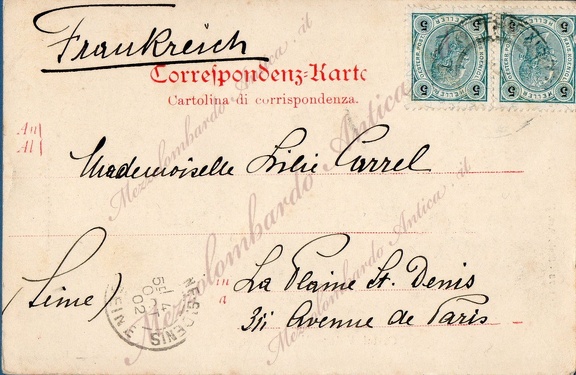 Frankreich
Correspondenz-Karte
Cartolina di corrispondenza.
An
Al
Mademoiselle Lilie Carrel
in
a
La Plaine St. Denis
(Seine)
Avenue de Paris
5 HELLER 5
5 HELLER 5
Mezzolombardo Antica.it
Mezzolombardo Antica.it
Mezzolombardo Antica.it